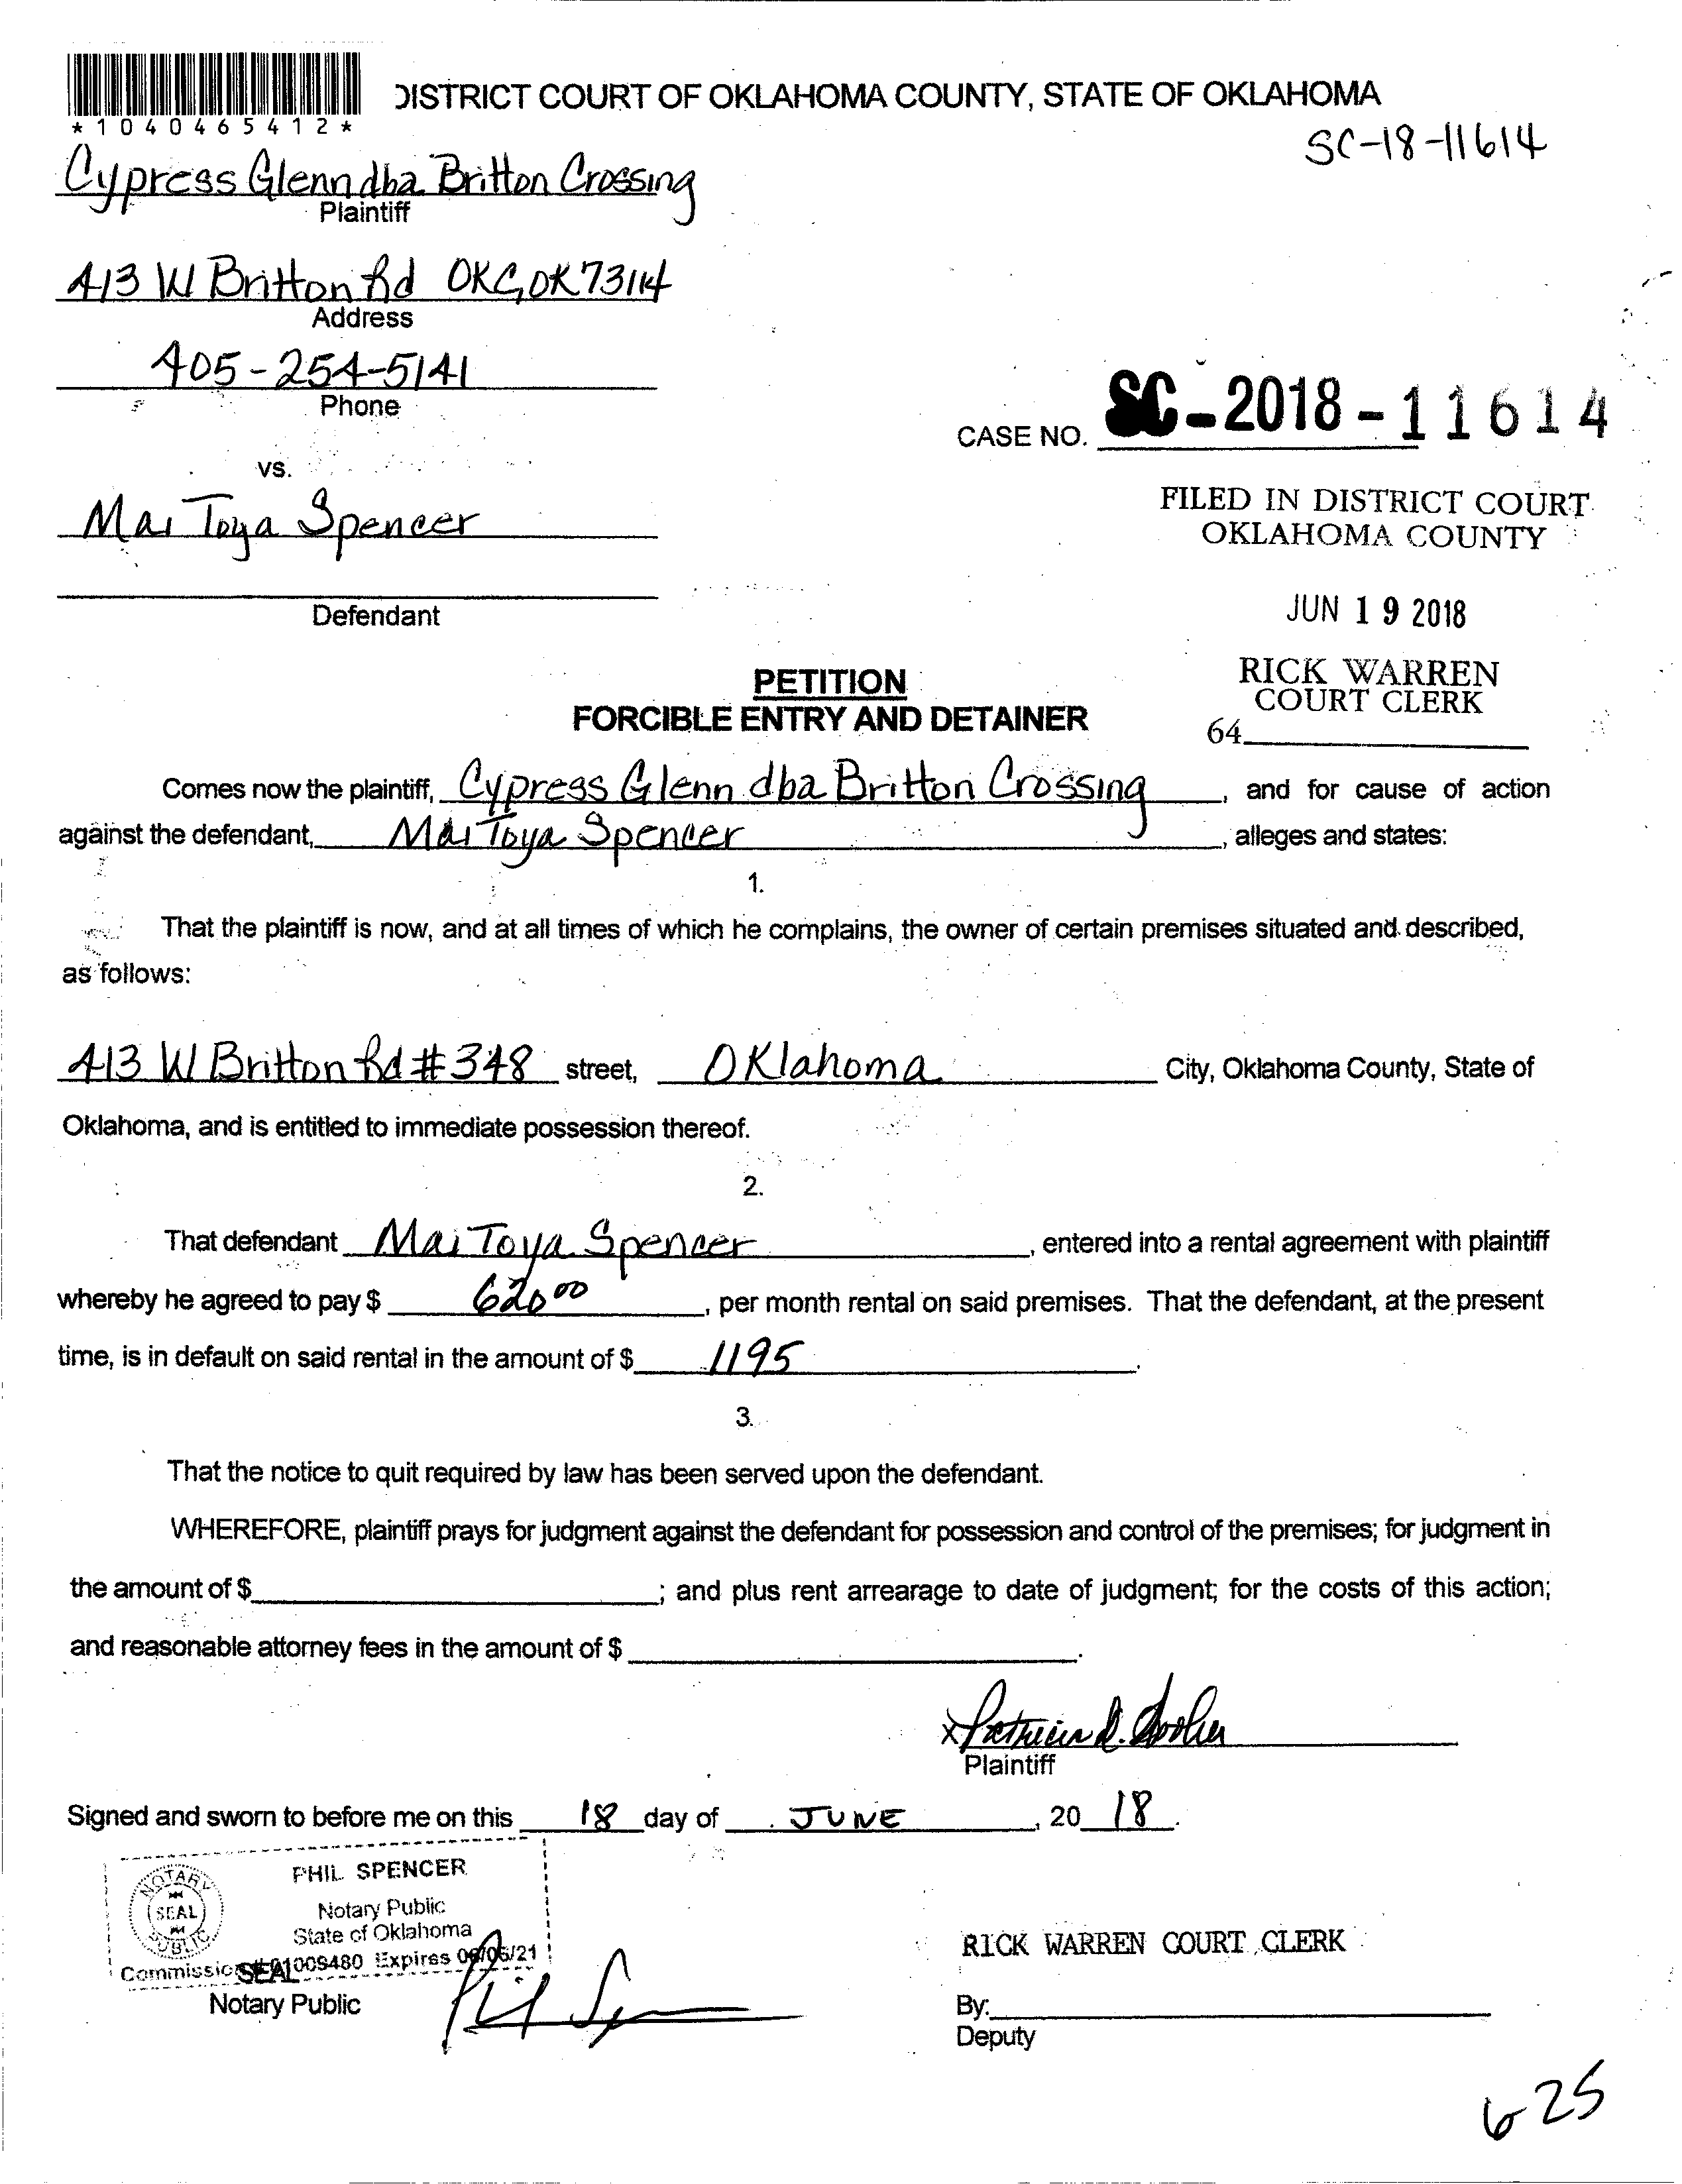 DISTRICT COURT OF OKLAHOMA COUNTY, STATE OF OKLAHOMA
*1040465412*
SC-18-11614
Cypress Glenn dba Britton Crossing
Plaintiff
413 W Britton Rd OKC, OK 73114
Address
405-254-5141
Phone
CASE NO. SC-2018-11614
vs.
Mai Toya Spencer
FILED IN DISTRICT COURT
OKLAHOMA COUNTY
Defendant
JUN 19 2018
PETITION
FORCIBLE ENTRY AND DETAINER
RICK WARREN
COURT CLERK
64
Comes now the plaintiff, Cypress Glenn dba Britton Crossing, and for cause of action
against the defendant, Mai Toya Spencer, alleges and states:
1.
That the plaintiff is now, and at all times of which he complains, the owner of certain premises situated and described,
as follows:
413 W Britton Rd #348 street, Oklahoma City, Oklahoma County, State of
Oklahoma, and is entitled to immediate possession thereof.
2.
That defendant Mai Toya Spencer, entered into a rental agreement with plaintiff
whereby he agreed to pay $ 620 00, per month rental on said premises. That the defendant, at the present
time, is in default on said rental in the amount of $ 1195.
3.
That the notice to quit required by law has been served upon the defendant.
WHEREFORE, plaintiff prays for judgment against the defendant for possession and control of the premises; for judgment in
the amount of $ ; and plus rent arrearage to date of judgment; for the costs of this action;
and reasonable attorney fees in the amount of $ .
x Patricia D.
Plaintiff
Signed and sworn to before me on this 18 day of JUNE, 20 18.
NOTARY PUBLIC
SEAL
PHIL SPENCER
Notary Public
State of Oklahoma
Commission # 01009480 Expires
SEAL
Notary Public
RICK WARREN COURT CLERK
By:
Deputy
6-25